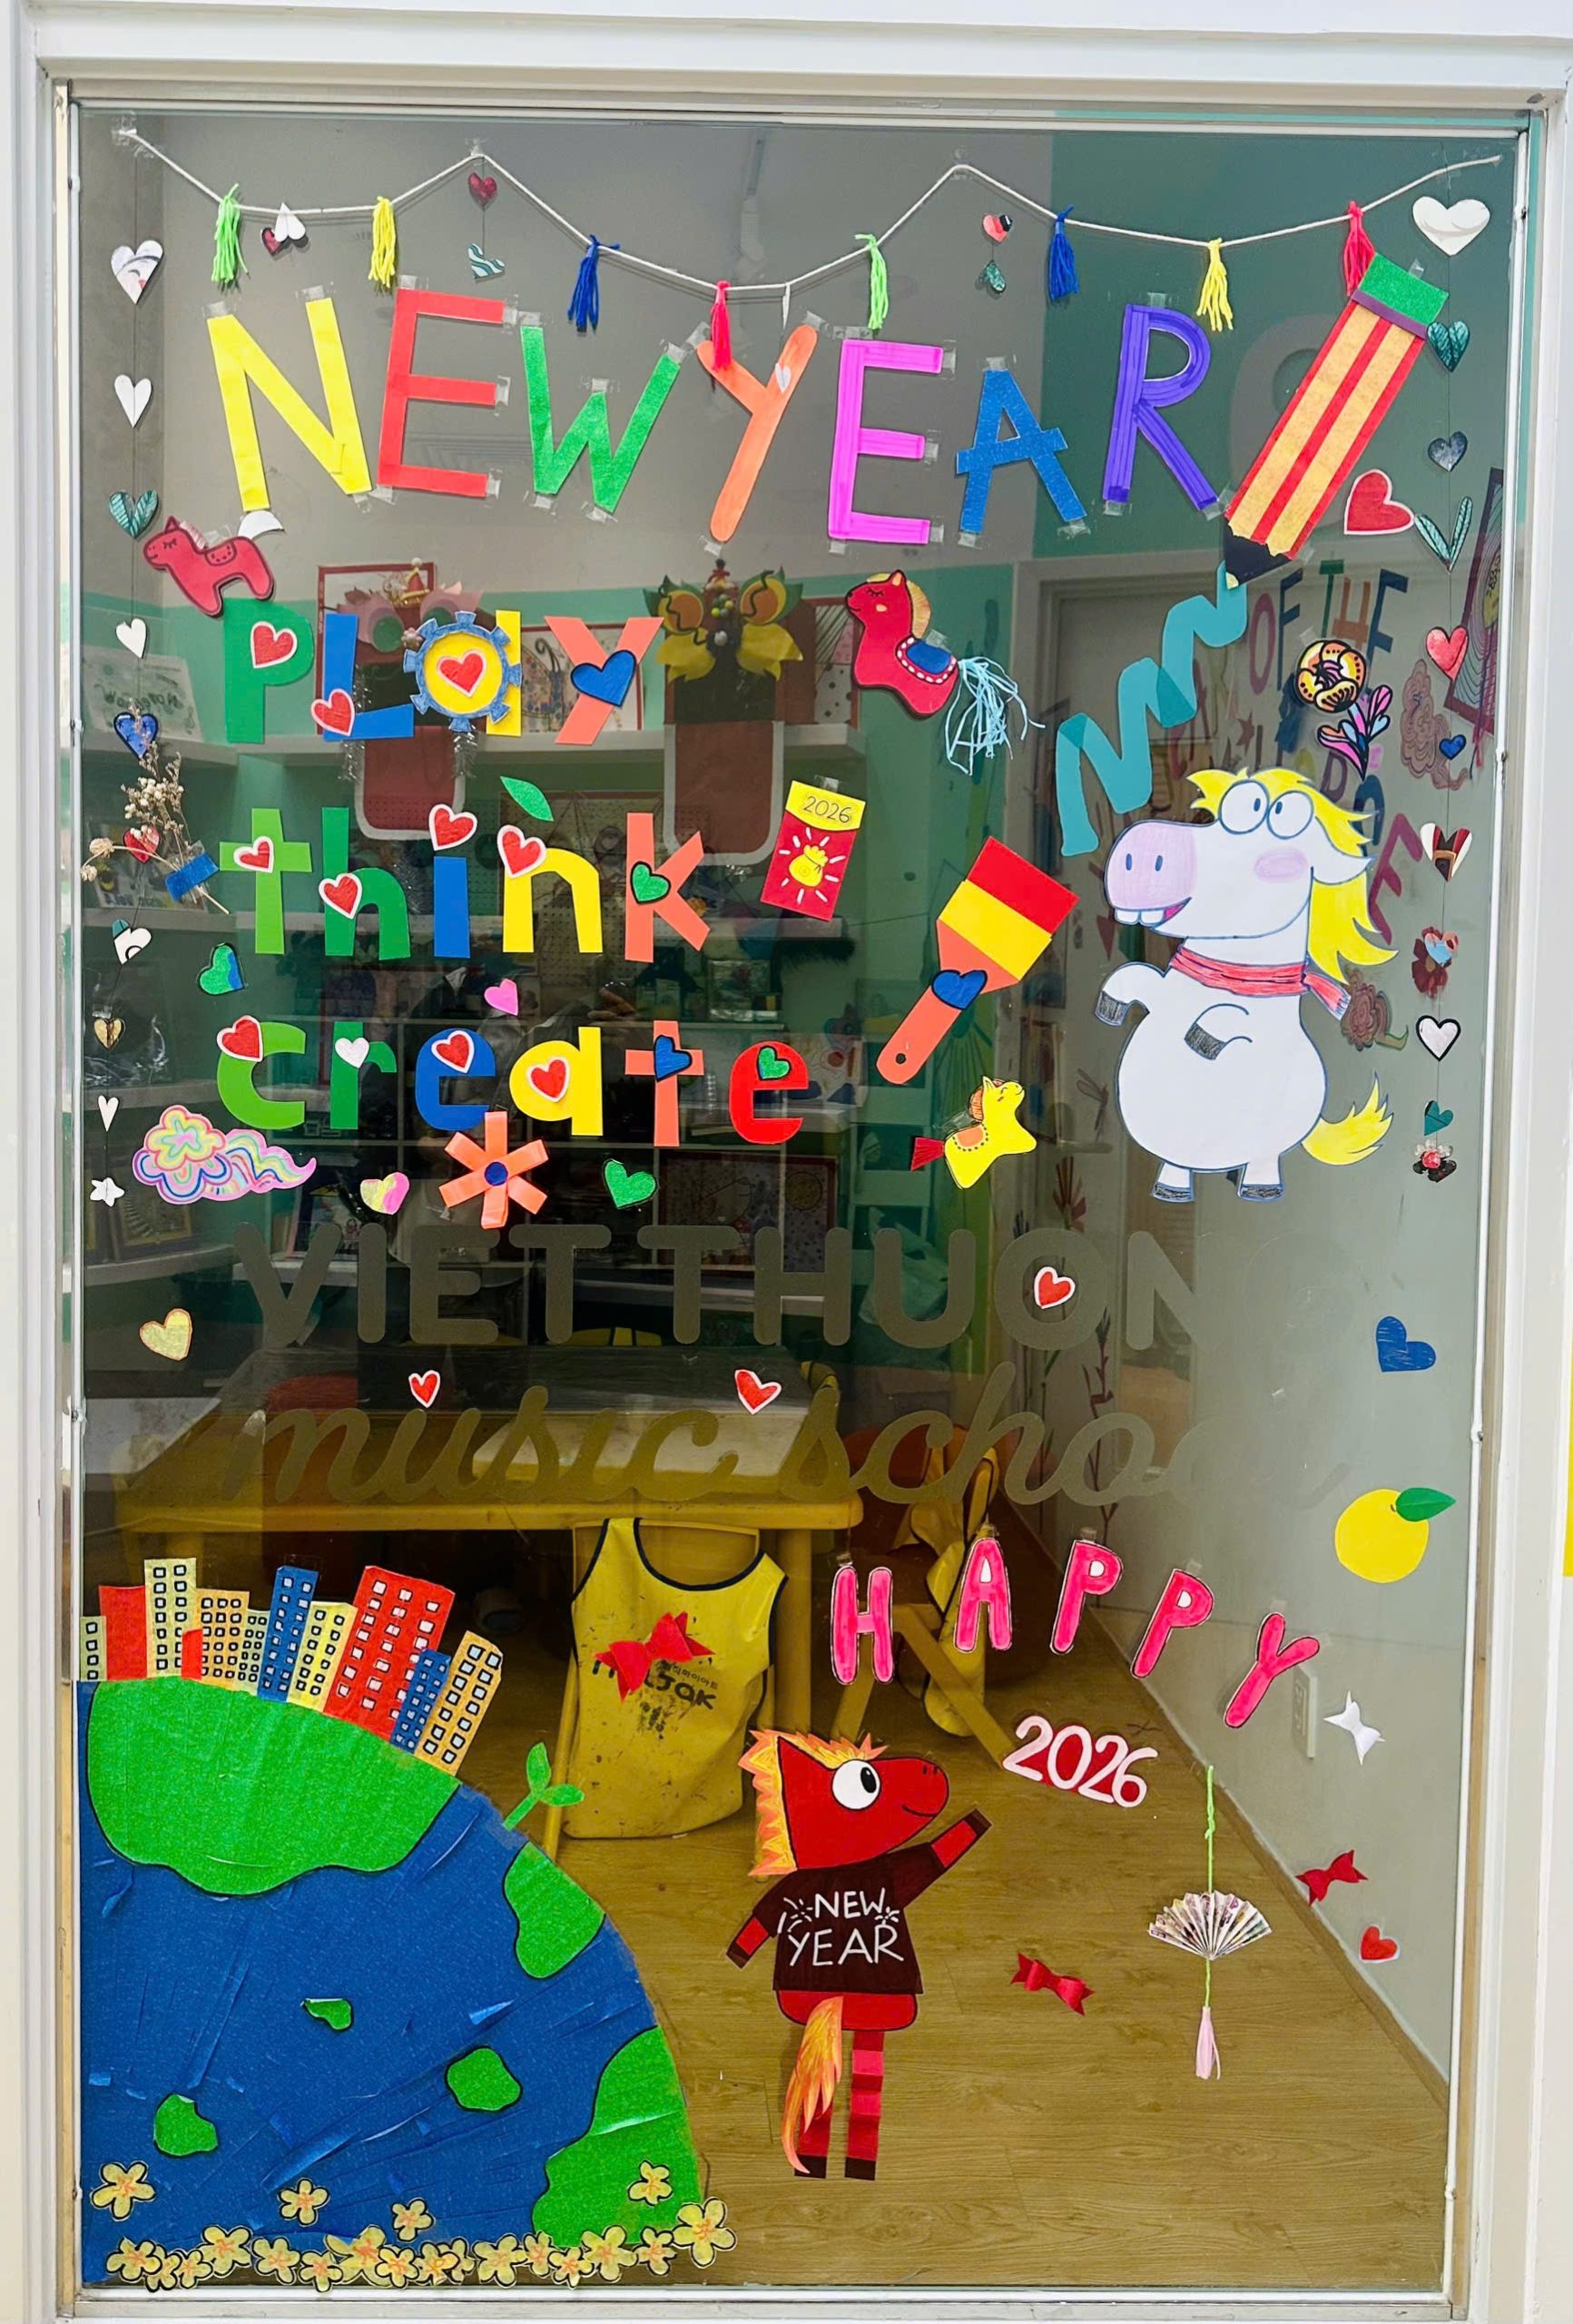 NEW YEAR
OF THE
play
think
2026
create
VIET THUON
music schoo
HAPPY
2026
NEW
YEAR